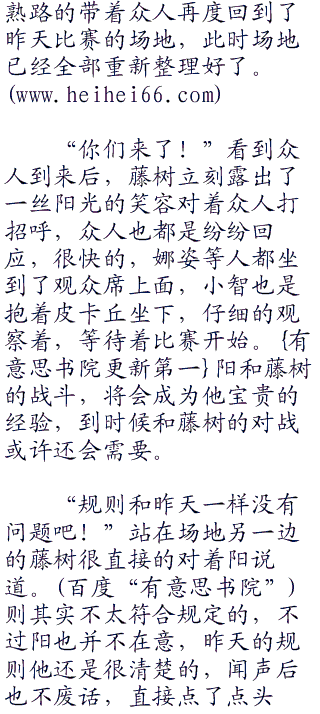 熟路的带着众人再度回到了
昨天比赛的场地，此时场地
已经全部重新整理好了。
(www.heihei66.com)
“你们来了！”看到众
人到来后，藤树立刻露出了
一丝阳光的笑容对着众人打
招呼，众人也都是纷纷回
应，很快的，娜姿等人都坐
到了观众席上面，小智也是
抱着皮卡丘坐下，仔细的观
察着，等待着比赛开始。{有
意思书院更新第一}阳和藤树
的战斗，将会成为他宝贵的
经验，到时候和藤树的对战
或许还会需要。
“规则和昨天一样没有
问题吧！”站在场地另一边
的藤树很直接的对着阳说
道。(百度“有意思书院”)
则其实不太符合规定的，不
过阳也并不在意，昨天的规
则他还是很清楚的，闻声后
也不废话，直接点了点头